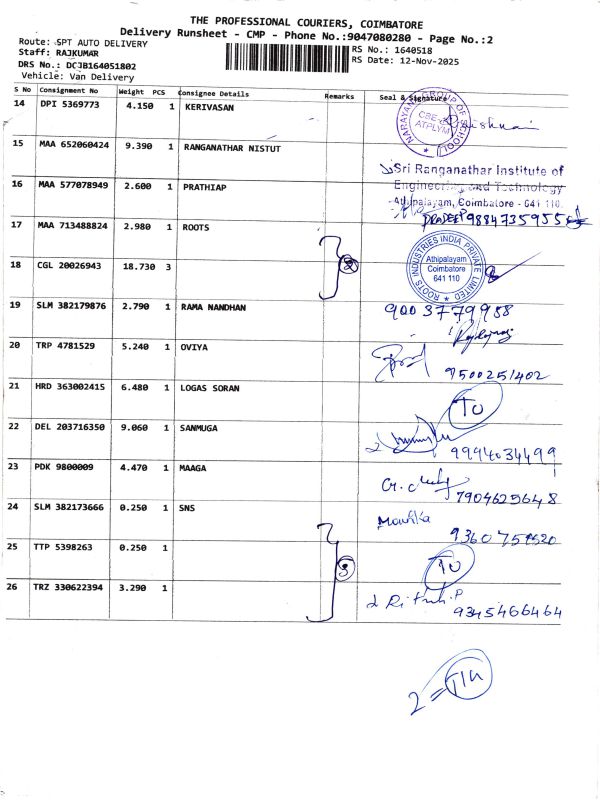 THE PROFESSIONAL COURIERS, COIMBATORE
Delivery Runsheet - CMP - Phone No.:9047080280 - Page No.:2
Route: SPT AUTO DELIVERY
Staff: RAJKUMAR
DRS No.: DCJB164051802
Vehicle: Van Delivery
RS No.: 1640518
RS Date: 12-Nov-2025
S No Consignment No Weight PCS Consignee Details Remarks Seal & Signature
14 DPI 5369773 4.150 1 KERIVASAN
NARAYANA GROUP OF SCHOOL
CBE
ATPLYM
15 MAA 652060424 9.390 1 RANGANATHAR NISTUT
Sri Ranganathar Institute of
Engineering and Technology
Athipalayam, Coimbatore - 641 110.
16 MAA 577078949 2.600 1 PRATHIAP
PRADEEP 9884735955
17 MAA 713488824 2.980 1 ROOTS
ROOTS INDUSTRIES INDIA PRIVATE LIMITED
Athipalayam
Coimbatore
641 110
18 CGL 20026943 18.730 3
2
19 SLM 382179876 2.790 1 RAMA NANDHAN
9003779958
20 TRP 4781529 5.240 1 OVIYA
9500251402
21 HRD 363002415 6.480 1 LOGAS SORAN
To
22 DEL 203716350 9.060 1 SANMUGA
9994034499
23 PDK 9800009 4.470 1 MAAGA
7904625648
24 SLM 382173666 0.250 1 SNS
Mounika
25 TTP 5398263 0.250 1
3
To
26 TRZ 330622394 3.290 1
9345466464
2 =